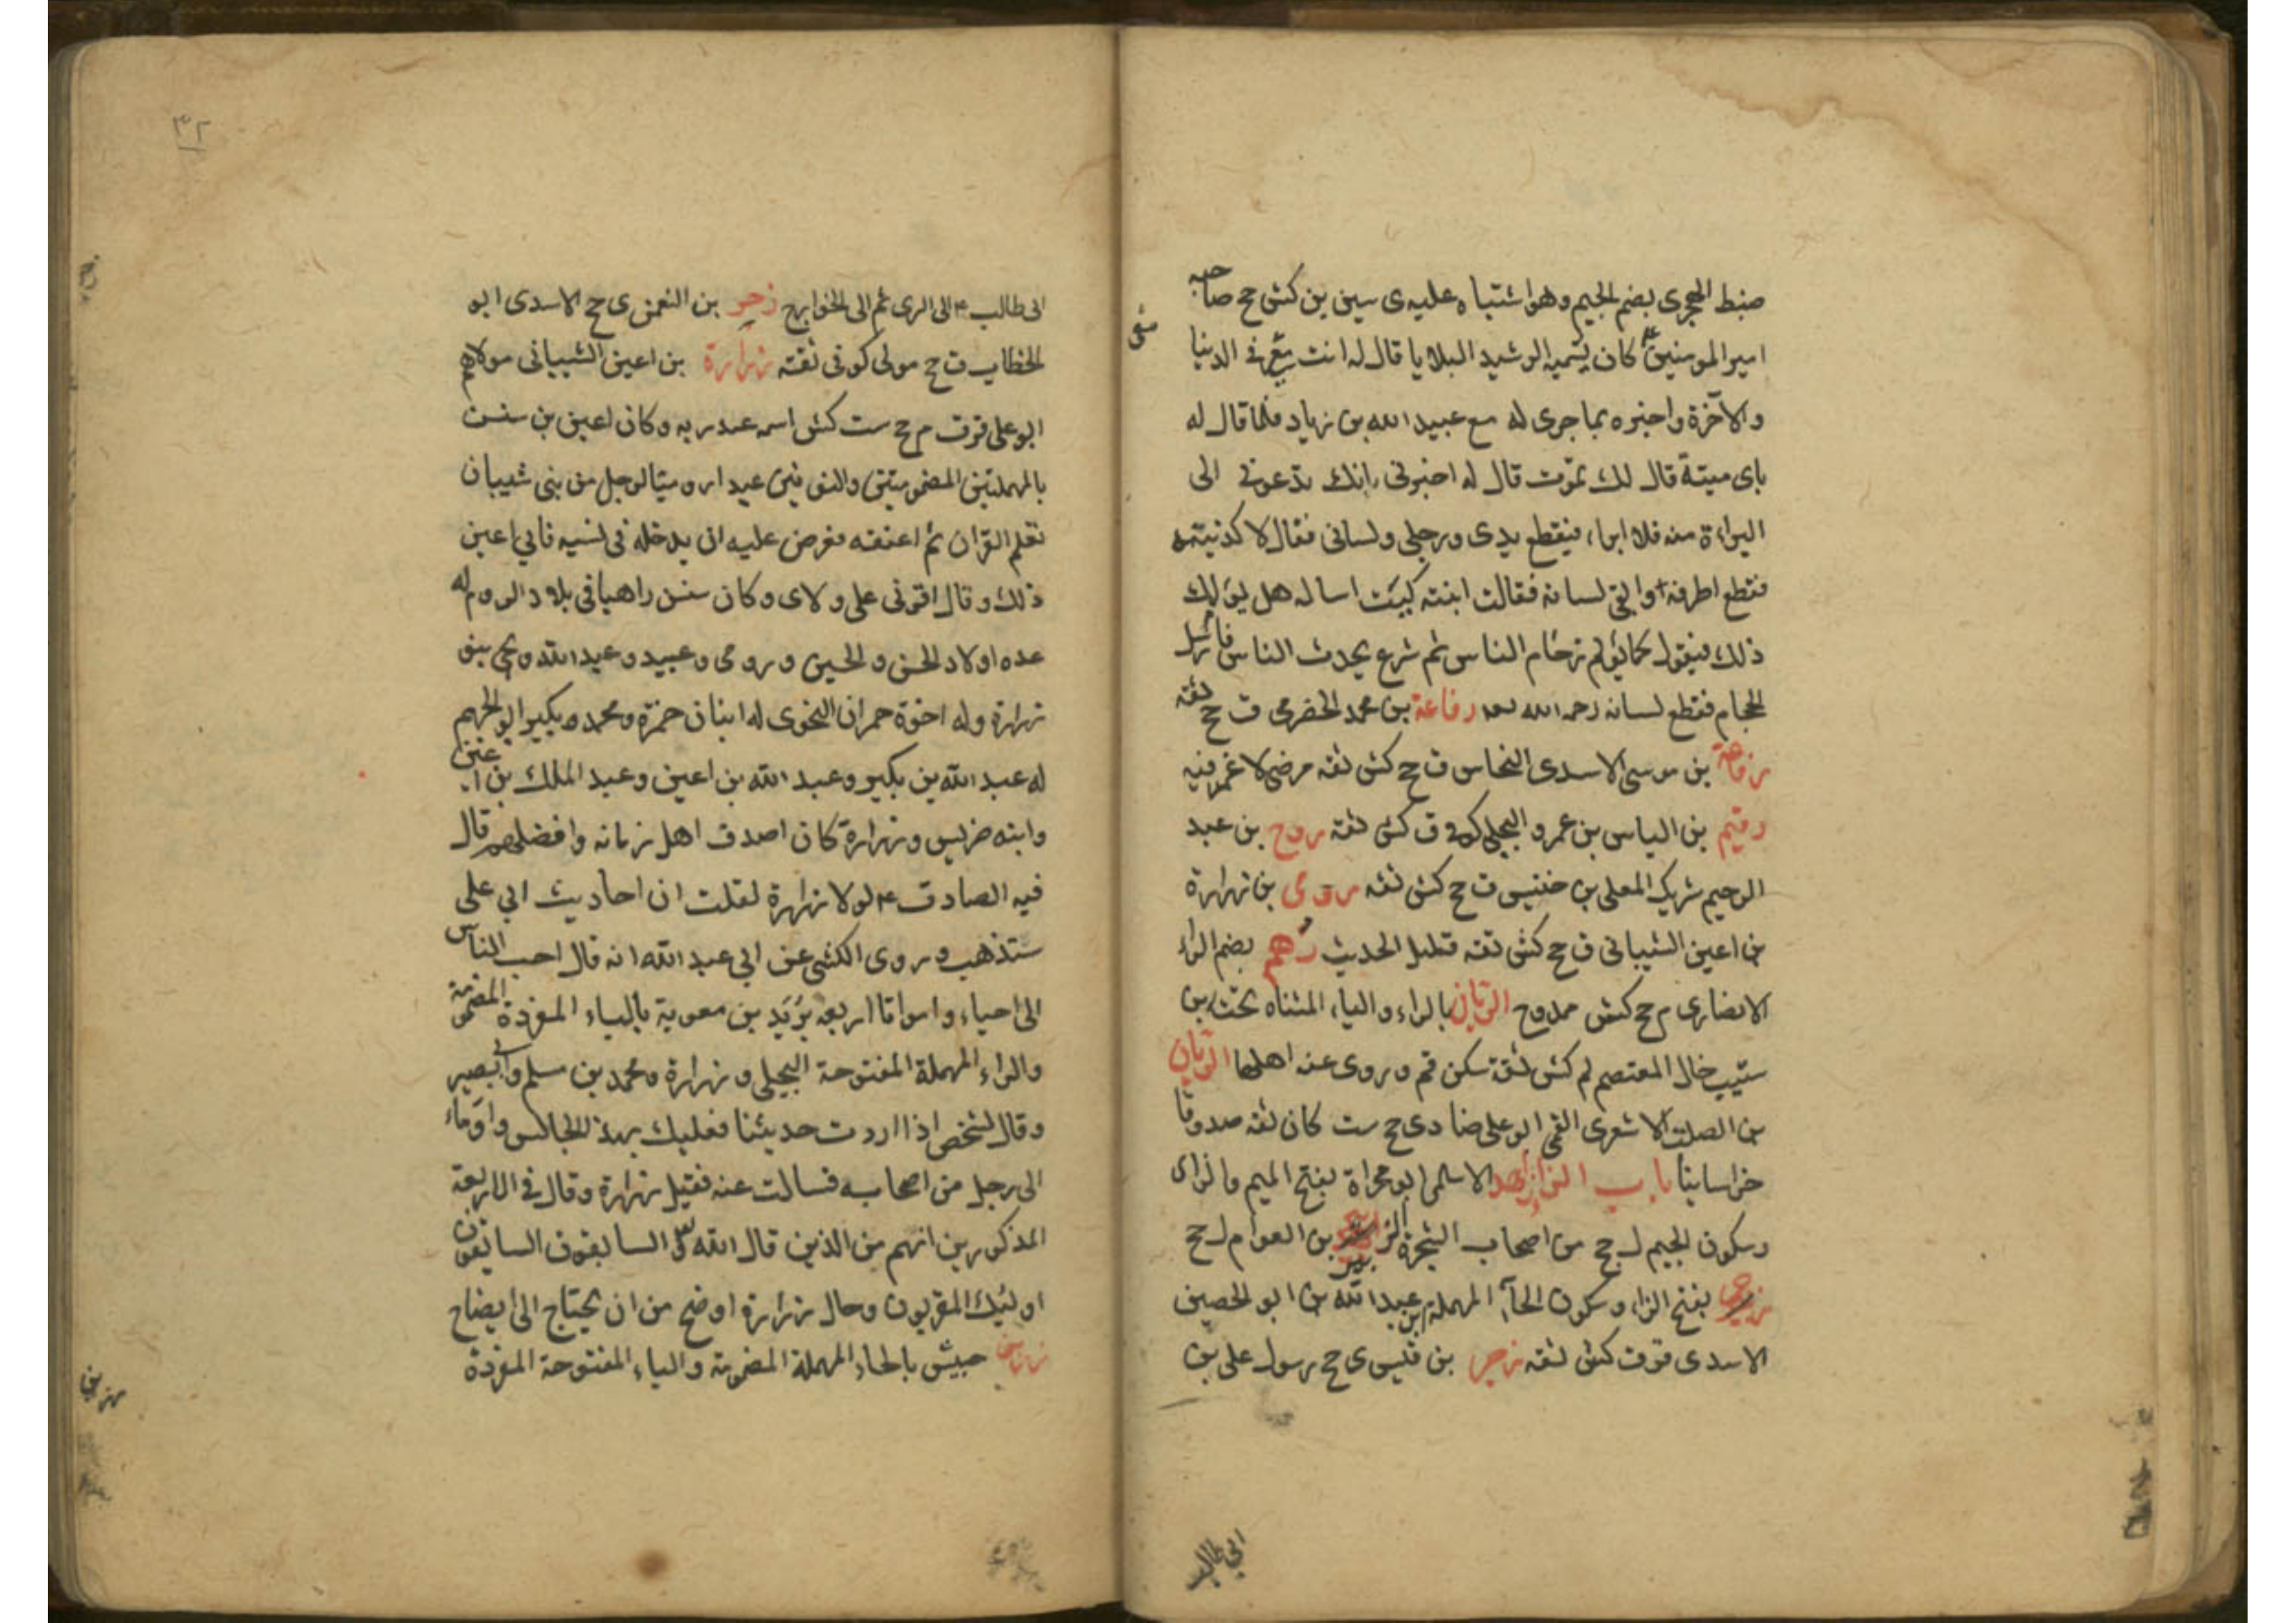 ضبط الهجرى بضم الجيم وهو اشتباه عليه ى سين ين كش جح صاحبه
امير المومنين ع كان يسميه الرشيد البلايا قال له انت معى فى الدنيا
معى
والآخرة واخبره بما جرى له مع عبيد الله بن زياد فلما قال له
باى ميتة قال لك تموت قال له اخبرنى بانك تدعونى الى
البراءة منه فلا ابراء فيقطع يدى ورجلى ولسانى فقال لاكذبنه
فقطع اطرافه وابقى لسانه فقالت ابنته كيت اساله هل يولمك
ذلك فيقول كما يولم زحام الناس ثم شرع يحدث الناس فارسل
الحجام فقطع لسانه رحمه الله رفاعة بن محمد الحضرمى ق جح ثقه
رفاعة بن موسى الاسدى النخاس ق جح كش ثقه مرضى لا غمز فيه
رقيم بن الياس بن عمرو البجلى كوفى ق كش ثقة روح بن عبد
الرحيم شريك المعلى بن خنيس ق جح كش ثقه رومى بن زرارة
بن اعين الشيبانى ق جح كش ثقه قليل الحديث رهم بضم الراء
الانصارى م جح كش ممدوح الريان بالراء والياء المثناه تحت بن
شبيب خال المعتصم لم كش ثقة سكن قم وروى عنه اهلها الريان
بن الصلت الاشعرى القمى ابو على ضا دى جح ست كان ثقه صدوقا
خراسانيا باب الزا زاهر الاسلمى ابو مجزاة بفتح الميم والزاى
وسكون الجيم ل جح من اصحاب الشجرة الزبير بن العوام ل جح
زحر بفتح الزاء وسكون الحاء المهملة بن عبد الله بن ابو الحصين
الاسدى قر ق كش ثقه زحر بن قيس ى جح رسول على بن
ابي طالب
٣٢
ابى طالب ع الى الرى ثم الى الخوارج زحر بن النعمن ى جح الاسدى ابو
الخطاب ق جح مولى كوفى ثقته زرارة بن اعين الشيبانى مولاهم
ابو على قر ق م جح ست كش اسمه عبد ربه وكان اعين بن سنسن
بالمهملتين المضمومتين والنونين عبدا روميا لرجل من بنى شيبان
تعلم القران ثم اعتقه فعرض عليه ان يدخله فى نسبه فابى اعين
ذلك وقال اقرنى على ولاى وكان سنسن راهبا فى بلاد الروم له
عده اولاد الحسن والحسين ورومى وعبيد وعبد الله ويحيى بنو
زرارة وله اخوة حمران النحوى له ابنان حمزة ومحمد وبكير ابو الجهم
له عبد الله بن بكير وعبد الله بن اعين وعبد الملك بن اعين
وابنه ضريس وزرارة كان اصدق اهل زمانه وافضلهم قال
فيه الصادق ع لولا زرارة لقلت ان احاديث ابي على
ستذهب وروى الكشى عن ابي عبد الله انه قال احب الناس
الى احياء وامواتا اربعه بُرَيد بن معوية بالباء المفردة المضمومة
والراء المهملة المفتوحة البجلى وزرارة ومحمد بن مسلم وابى بصير
وقال لشخص اذا اردت حديثنا فعليك بهذا الجالس واوماء
الى رجل من اصحابه فسالت عنه فقيل زرارة وقال فى الاربعة
المذكورين انهم من الذين قال الله تعالى السابقون السابقون
اولئك المقربون وحال زرارة اوضح من ان يحتاج الى ايضاح
حبيش بالحاء المهملة المضمومة والباء المفتوحة المفردة